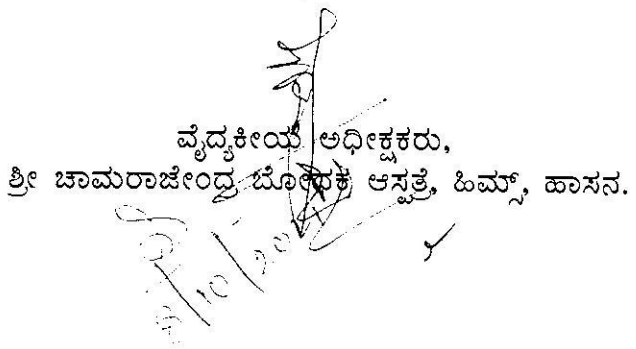 ವೈದ್ಯಕೀಯ ಅಧೀಕ್ಷಕರು,
ಶ್ರೀ ಚಾಮರಾಜೇಂದ್ರ ಬೋಧಕ ಆಸ್ಪತ್ರೆ, ಹಿಮ್ಸ್, ಹಾಸನ.